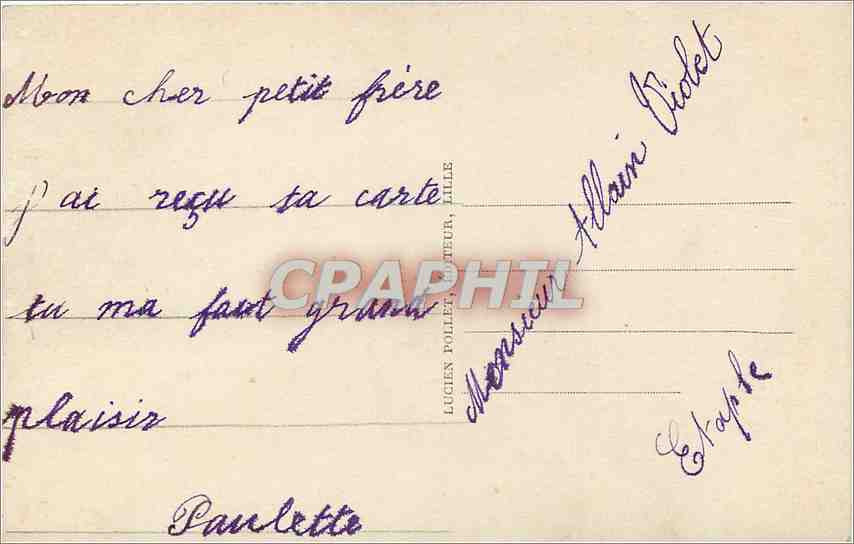 Mon cher petit frère
j'ai reçu ta carte
tu ma fait grand
plaisir
Paulette
LUCIEN POLLET, EDITEUR, LILLE
Monsieur Allain Violet
Etaple
CPAPHIL